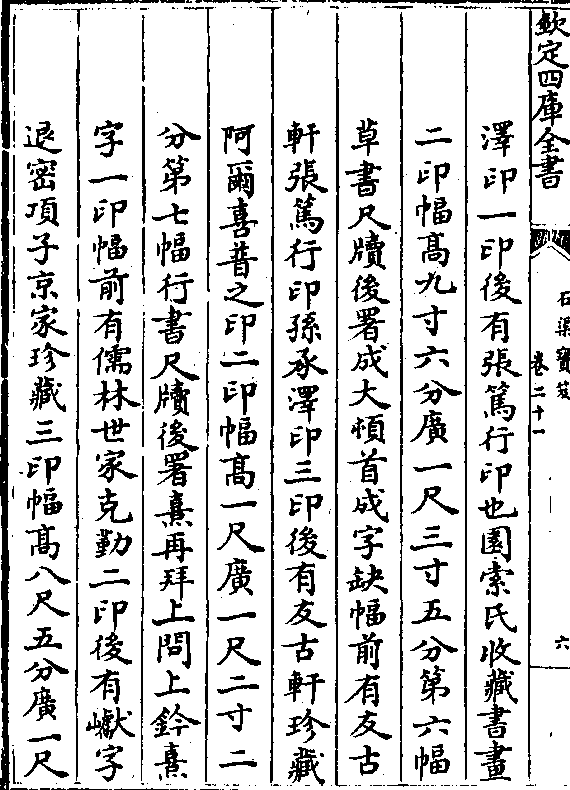 欽定四庫全書
石渠寶笈
卷二十一
六
澤印一印後有張篤行印也園索氏收藏書畫
二印幅髙九寸六分廣一尺三寸五分第六幅
草書尺牘後署成大頓首成字缺幅前有友古
軒張篤行印孫承澤印三印後有友古軒珍藏
阿爾喜普之印二印幅髙一尺廣一尺二寸二
分第七幅行書尺牘後署熹再拜上問上鈐熹
字一印幅前有儒林世家克勤二印後有巘字
退密項子京家珍藏三印幅髙八尺五分廣一尺